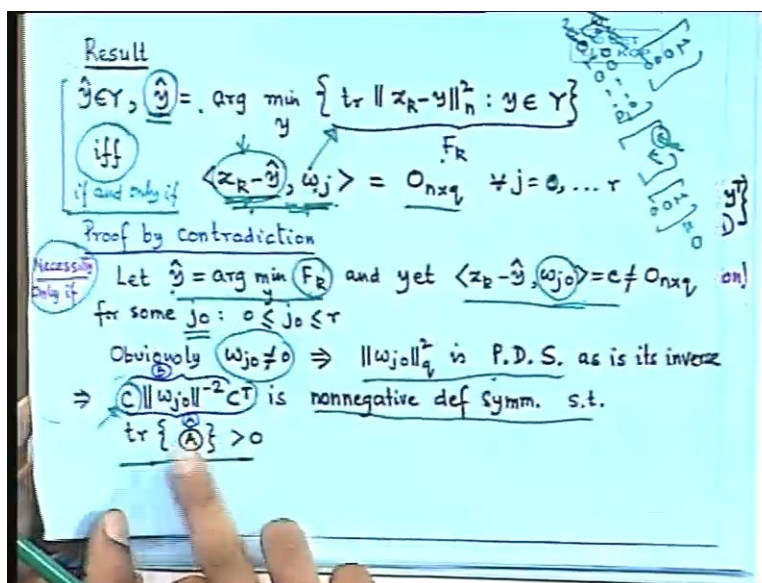 Result
ŷ ∈ Y, ŷ = arg min_y { tr ‖z_k − y‖²_n : y ∈ Y }
F_k
iff
if and only if
⟨z_k − ŷ, w_j⟩ = 0_{n×q} ∀ j = 0, ... r
Proof by contradiction
Necessity
Only if
Let ŷ = arg min_y F_k and yet ⟨z_k − ŷ, w_{j0}⟩ = c ≠ 0_{n×q}
for some j0 : 0 ≤ j0 ≤ r
Obviously w_{j0} ≠ 0 ⇒ ‖w_{j0}‖²_q is P.D.S. as is its inverse
⇒ C‖w_{j0}‖⁻² Cᵀ is nonnegative def symm. s.t.
tr { A } > 0
on!